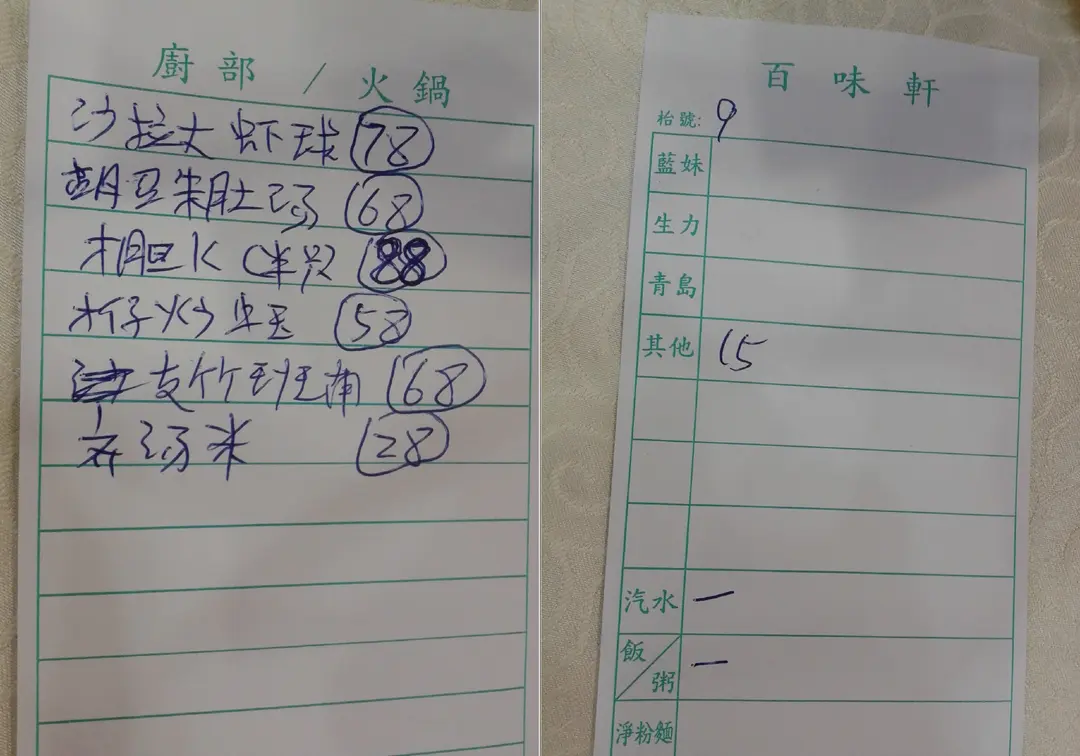 廚部 / 火鍋
沙拉大虾球 78
胡豆朱肚汤 68
(半只) 88
58
支竹班南 68
汤米 28
百味軒
枱號: 9
藍妹
生力
青島
其他 15
汽水 一
飯/粥 一
淨粉麵